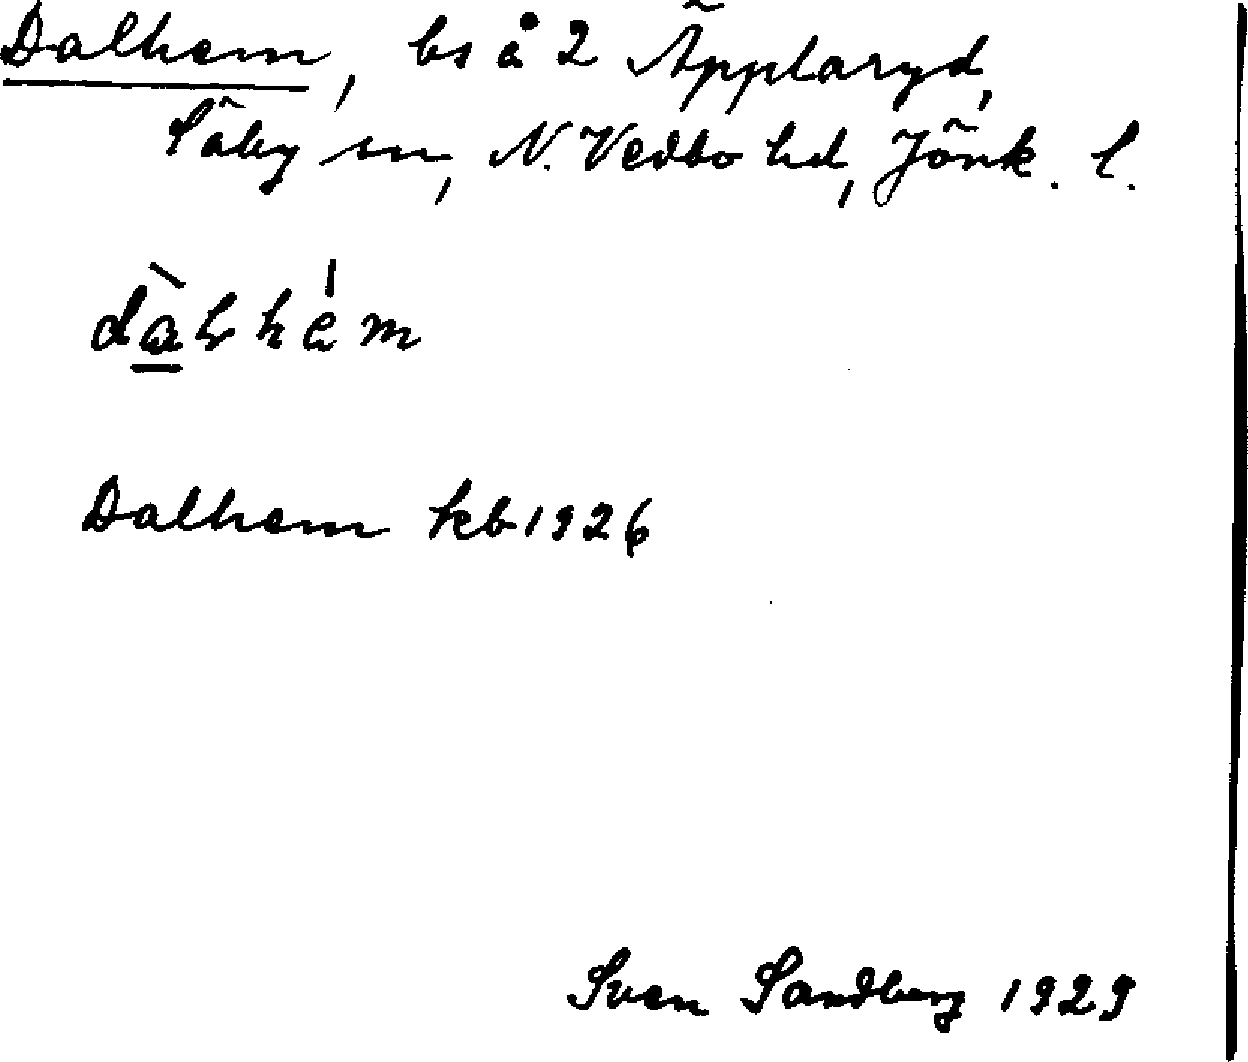 Dalhem, bs å 2 Äpplaryd,
Säby sn, N. Vedbo hd, Jönk. l.
dàlhém
Dalhem kb 1926
Sven Sandberg 1929